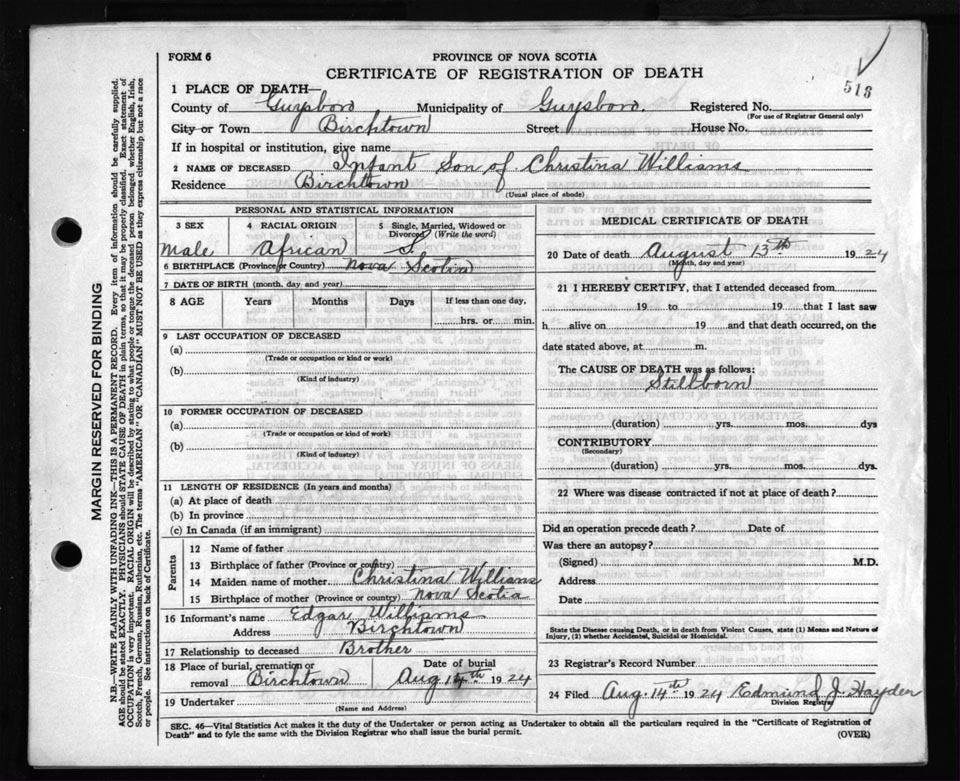 FORM 6
PROVINCE OF NOVA SCOTIA
CERTIFICATE OF REGISTRATION OF DEATH
513
1 PLACE OF DEATH—
County of Guysboro Municipality of Guysboro. Registered No.
(For use of Registrar General only)
City or Town Birchtown Street House No.
If in hospital or institution, give name
2 NAME OF DECEASED Infant Son of Christina Williams
Residence Birchtown
(Usual place of abode)
PERSONAL AND STATISTICAL INFORMATION
3 SEX 4 RACIAL ORIGIN 5 Single, Married, Widowed or Divorced (Write the word)
Male African S
6 BIRTHPLACE (Province or Country) Nova Scotia
7 DATE OF BIRTH (month, day and year)
8 AGE Years Months Days If less than one day,
hrs. or min.
9 LAST OCCUPATION OF DECEASED
(a)
(Trade or occupation or kind or work)
(b)
(Kind of industry)
10 FORMER OCCUPATION OF DECEASED
(a)
(Trade or occupation or kind of work)
(b)
(Kind of industry)
11 LENGTH OF RESIDENCE (In years and months)
(a) At place of death
(b) In province
(c) In Canada (if an immigrant)
Parents
12 Name of father
13 Birthplace of father (Province or country)
14 Maiden name of mother Christina Williams
15 Birthplace of mother (Province or country) Nova Scotia
16 Informant's name Edgar Williams
Address Birchtown
17 Relationship to deceased Brother
18 Place of burial, cremation or removal Birchtown Date of burial Aug 14th 1924
19 Undertaker
(Name and Address)
MEDICAL CERTIFICATE OF DEATH
20 Date of death August 13th 1924
(Month, day and year)
21 I HEREBY CERTIFY, that I attended deceased from
19 to 19 that I last saw
h alive on 19 and that death occurred, on the
date stated above, at m.
The CAUSE OF DEATH was as follows:
Stillborn
(duration) yrs. mos. dys
CONTRIBUTORY
(Secondary)
(duration) yrs. mos. dys.
22 Where was disease contracted if not at place of death?
Did an operation precede death? Date of
Was there an autopsy?
(Signed) M.D.
Address
Date
State the Disease causing Death, or in death from Violent Causes, state (1) Means and Nature of
Injury, (2) whether Accidental, Suicidal or Homicidal.
23 Registrar's Record Number
24 Filed Aug. 14th 1924 Edmund J. Hayden
Division Registrar
SEC. 46—Vital Statistics Act makes it the duty of the Undertaker or person acting as Undertaker to obtain all the particulars required in the "Certificate of Registration of
Death" and to fyle the same with the Division Registrar who shall issue the burial permit.
(OVER)
MARGIN RESERVED FOR BINDING
N.B.—WRITE PLAINLY WITH UNFADING INK—THIS IS A PERMANENT RECORD. Every item of information should be carefully supplied.
AGE should be stated EXACTLY. PHYSICIANS should STATE CAUSE OF DEATH in plain terms, so that it may be properly classified. Exact statement of
OCCUPATION is very important. RACIAL ORIGIN will be described by stating to what people or tongue the deceased person belonged whether English, Irish,
Scotch, French, German, Russian, Ruthenian, etc. The terms "AMERICAN" OR "CANADIAN" MUST NOT BE USED as they express citizenship but not a race
or people. See instructions on back of Certificate.